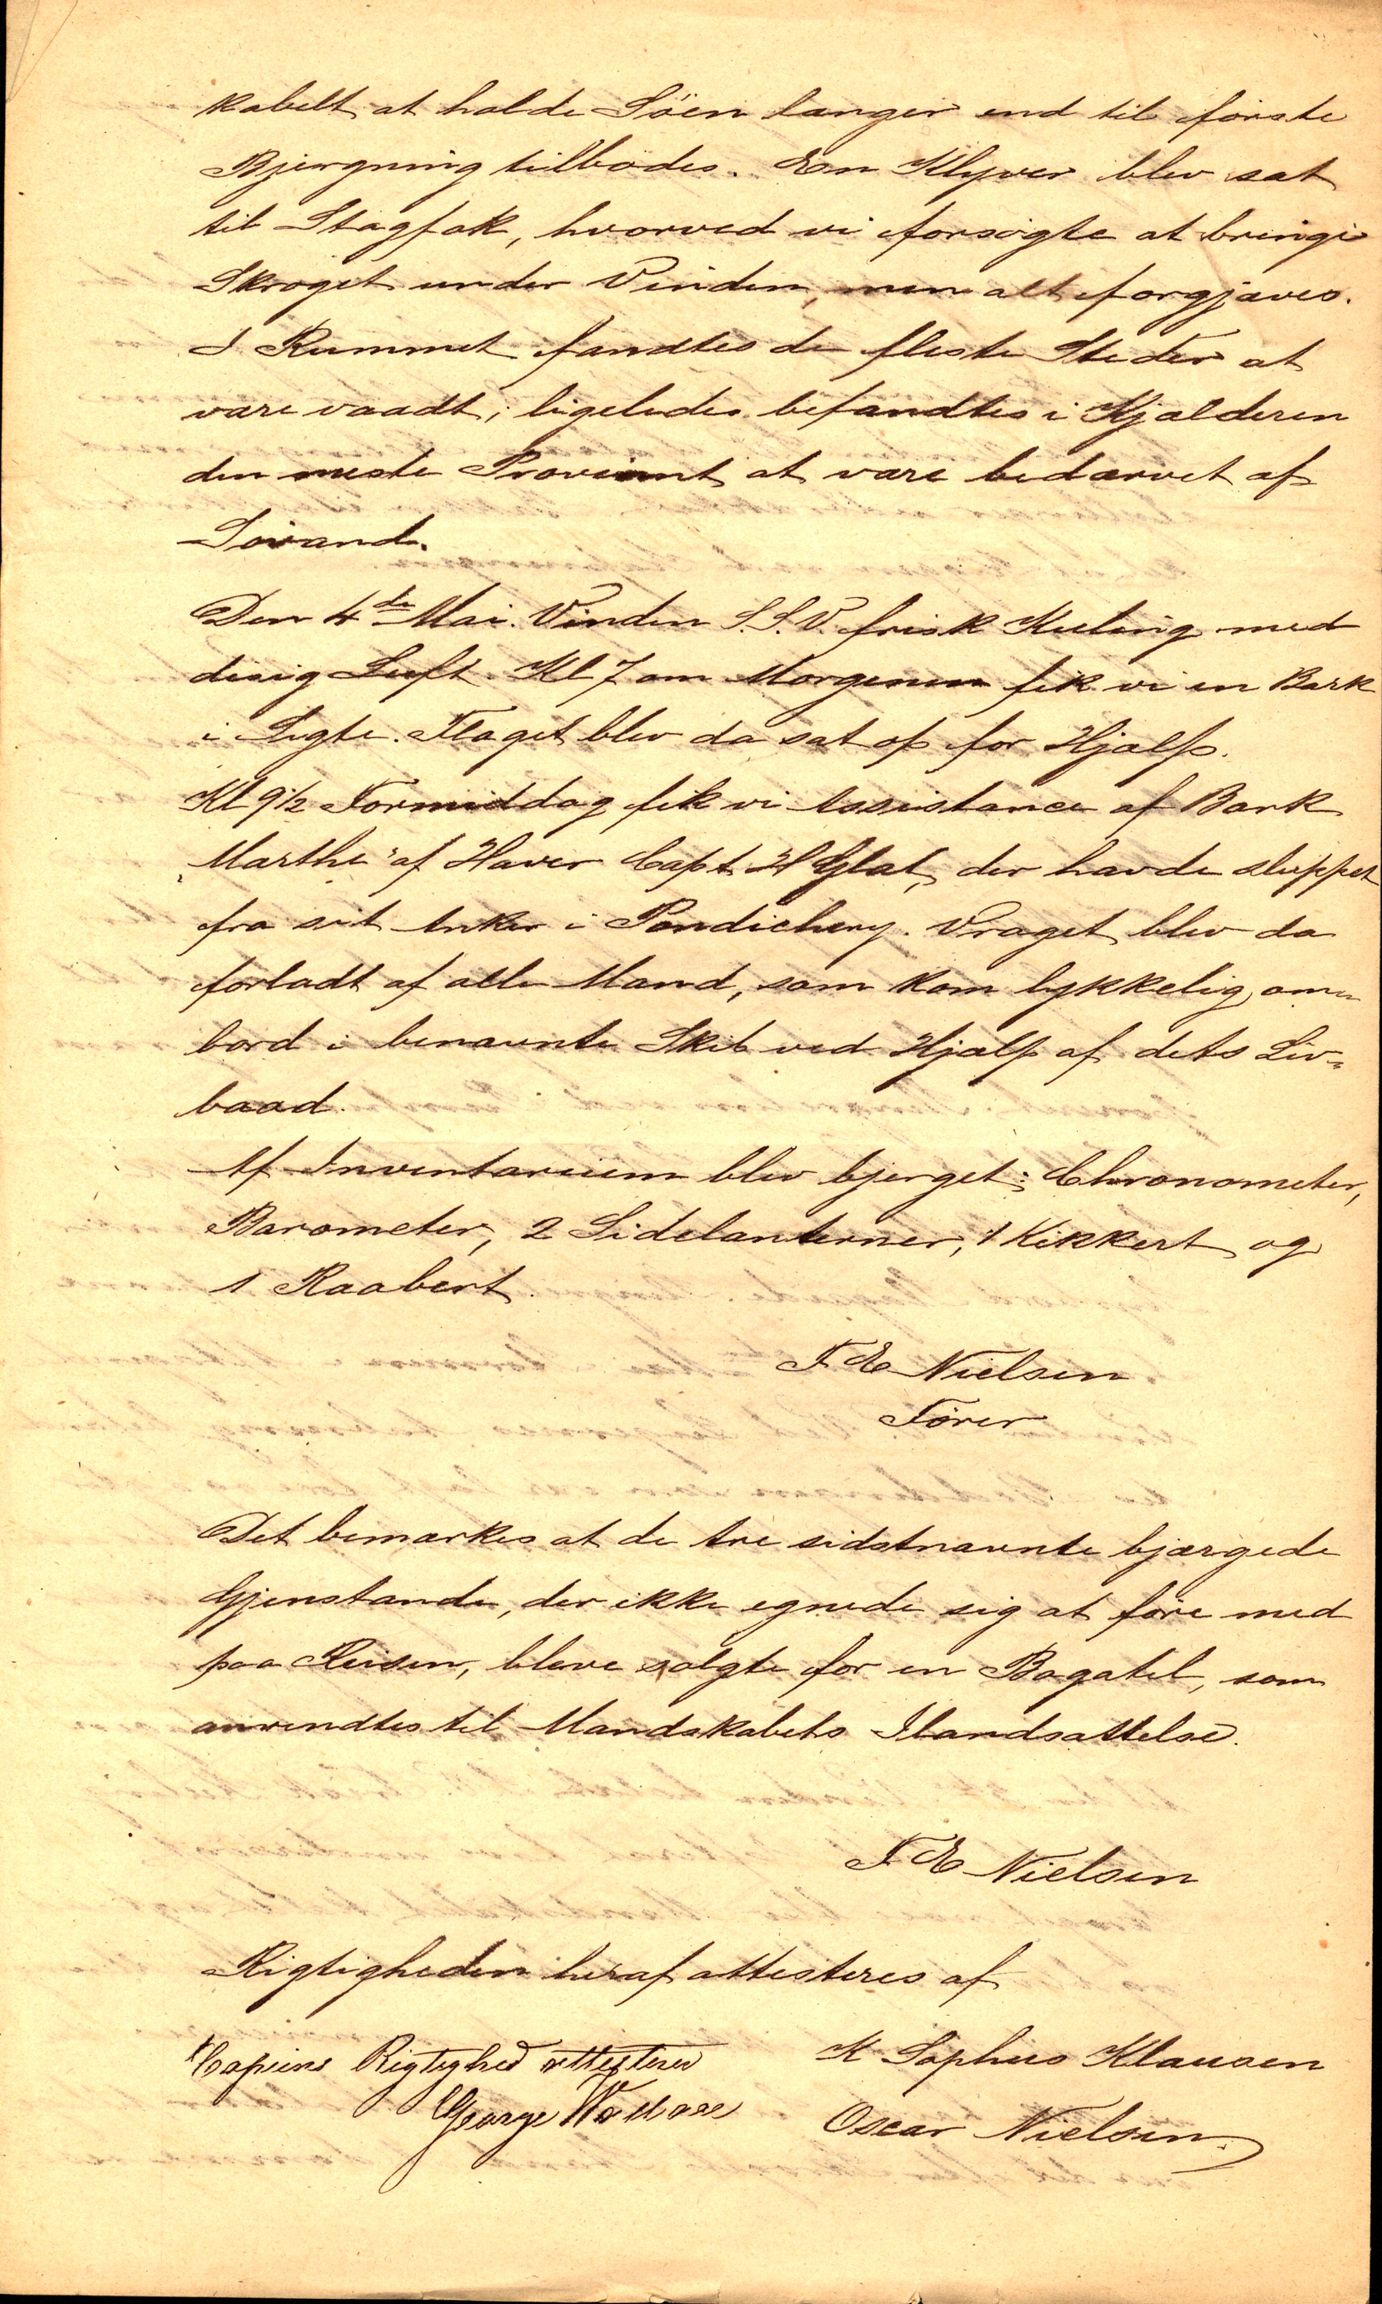 kabelt at holde Söen længer end til förste
Bjergning tilbödes. En Klyver blev sat
til Stagfok, hvorved vi forsögte at bringe
Skroget under Vinden, men alt forgjæves.
I Rummet fandtes de fleste Steder at
være vaadt; ligeledes befandtes i Kjælderen
den meste Proviant at være bedærvet af
Sövand.
Den 4de Mai. Vinden S.S.V. frisk Kuling med
disig Luft. Kl 7 om Morgenen fik vi en Bark
i Sigte. Flaget blev da sat op for Hjælp.
Kl 9½ Formiddag fik vi Assistance af Bark
"Marthe" af Haver Capt H Glat, der havde sluppet
fra sit Anker i Pondichery. Vraget blev da
forladt af alle Mand, som kom lykkelig om-
bord i benævnte Skib ved Hjælp af dets Liv-
baad.
Af Inventarium blev bjerget: Chronometer,
Barometer, 2 Sidelanterner, 1 Kikkert og
1 Raabert
F E Nielsen
Förer
Det bemærkes at de tre sidstnævnte bjærgede
Gjenstande, der ikke egnede sig at före med
paa Reisen, bleve solgte for en Bagatel, som
anvendtes til Mandskabets Ilandsættelse.
F E Nielsen
Rigtigheden heraf attesteres af
Copiens Rigtighed attesterer K Sophus Klausen
George Wallace Oscar Nielsen